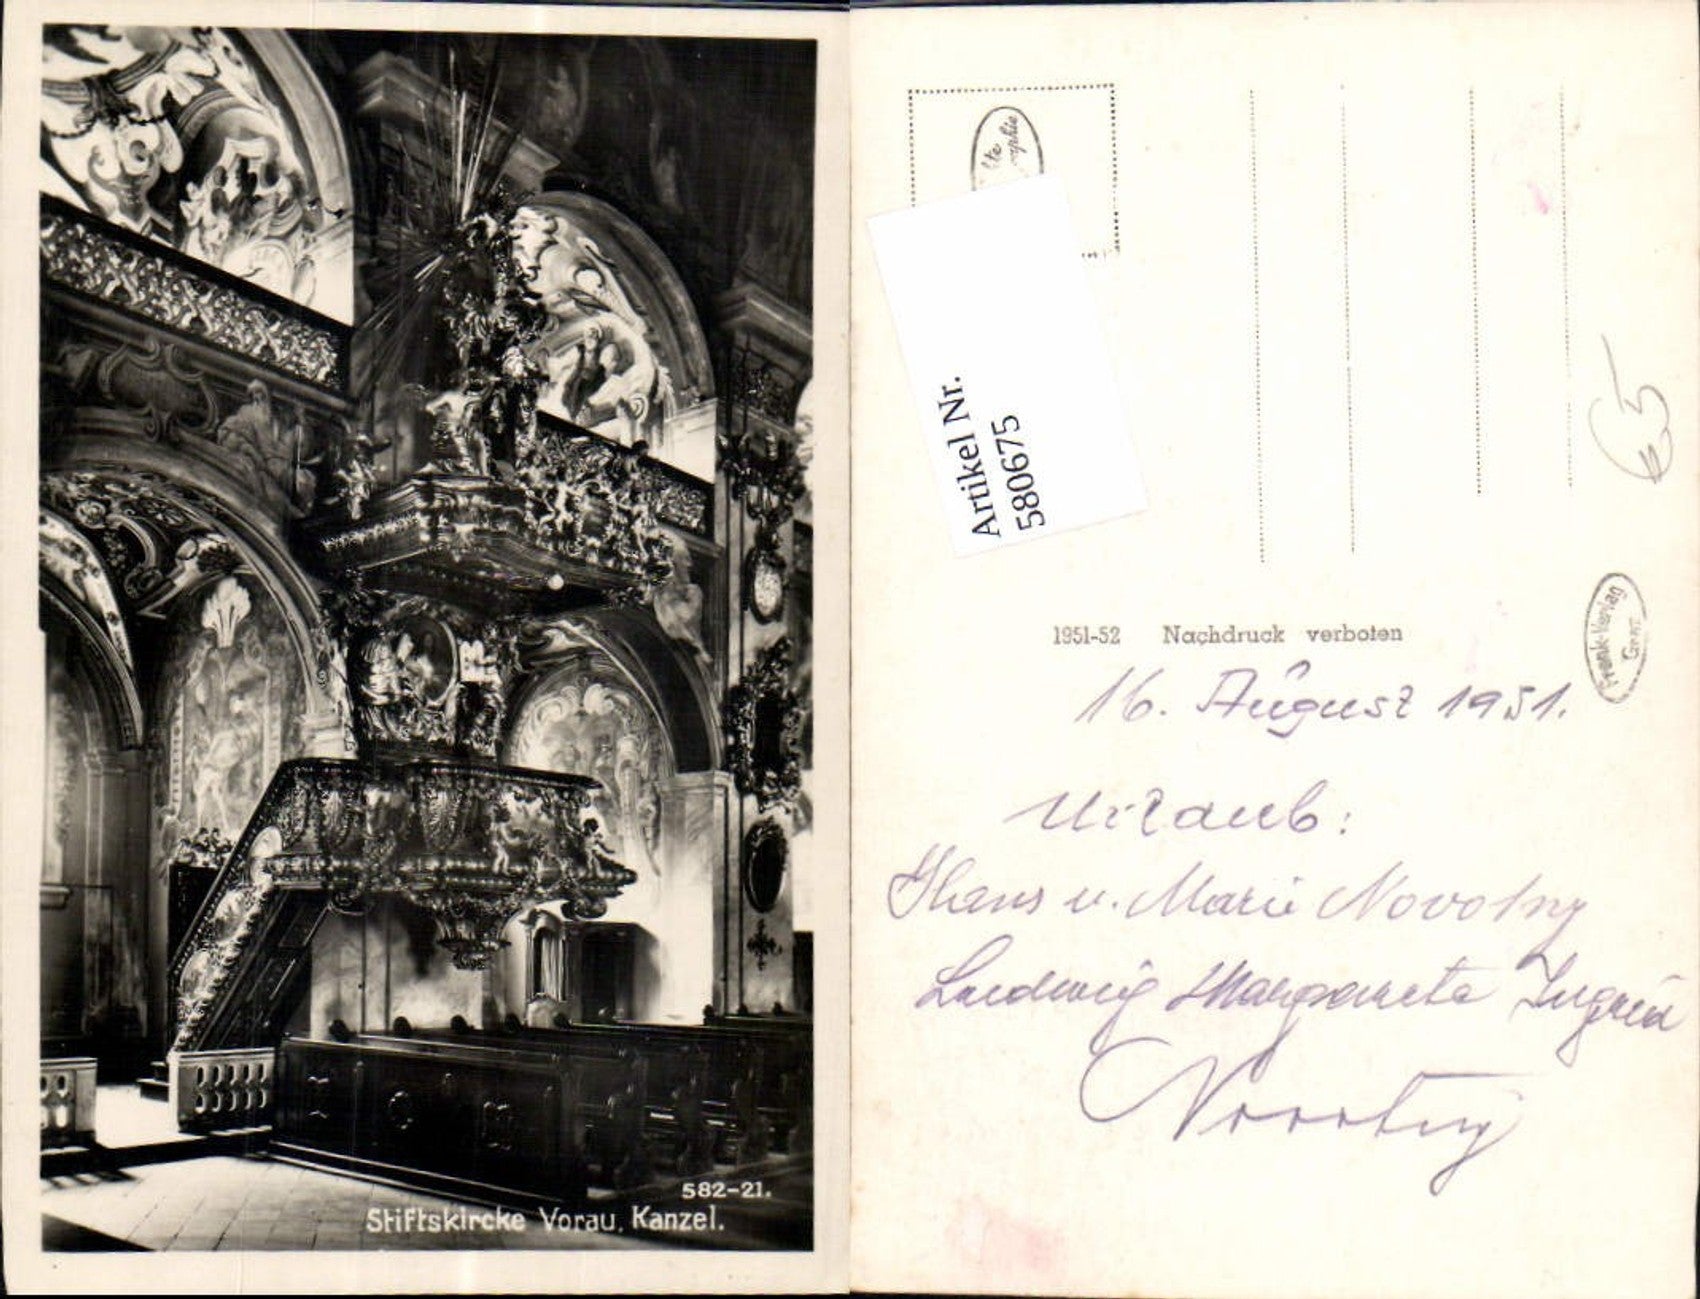 582-21.
Stiftskircke Vorau. Kanzel.
Artikel Nr.
580675
€5
1951-52 Nachdruck verboten
Frank-Verlag
Graz
16. August 1951.
Urlaub:
Hans u. Marie Novotny
Ludwig Margarete Ingrid
Novotny